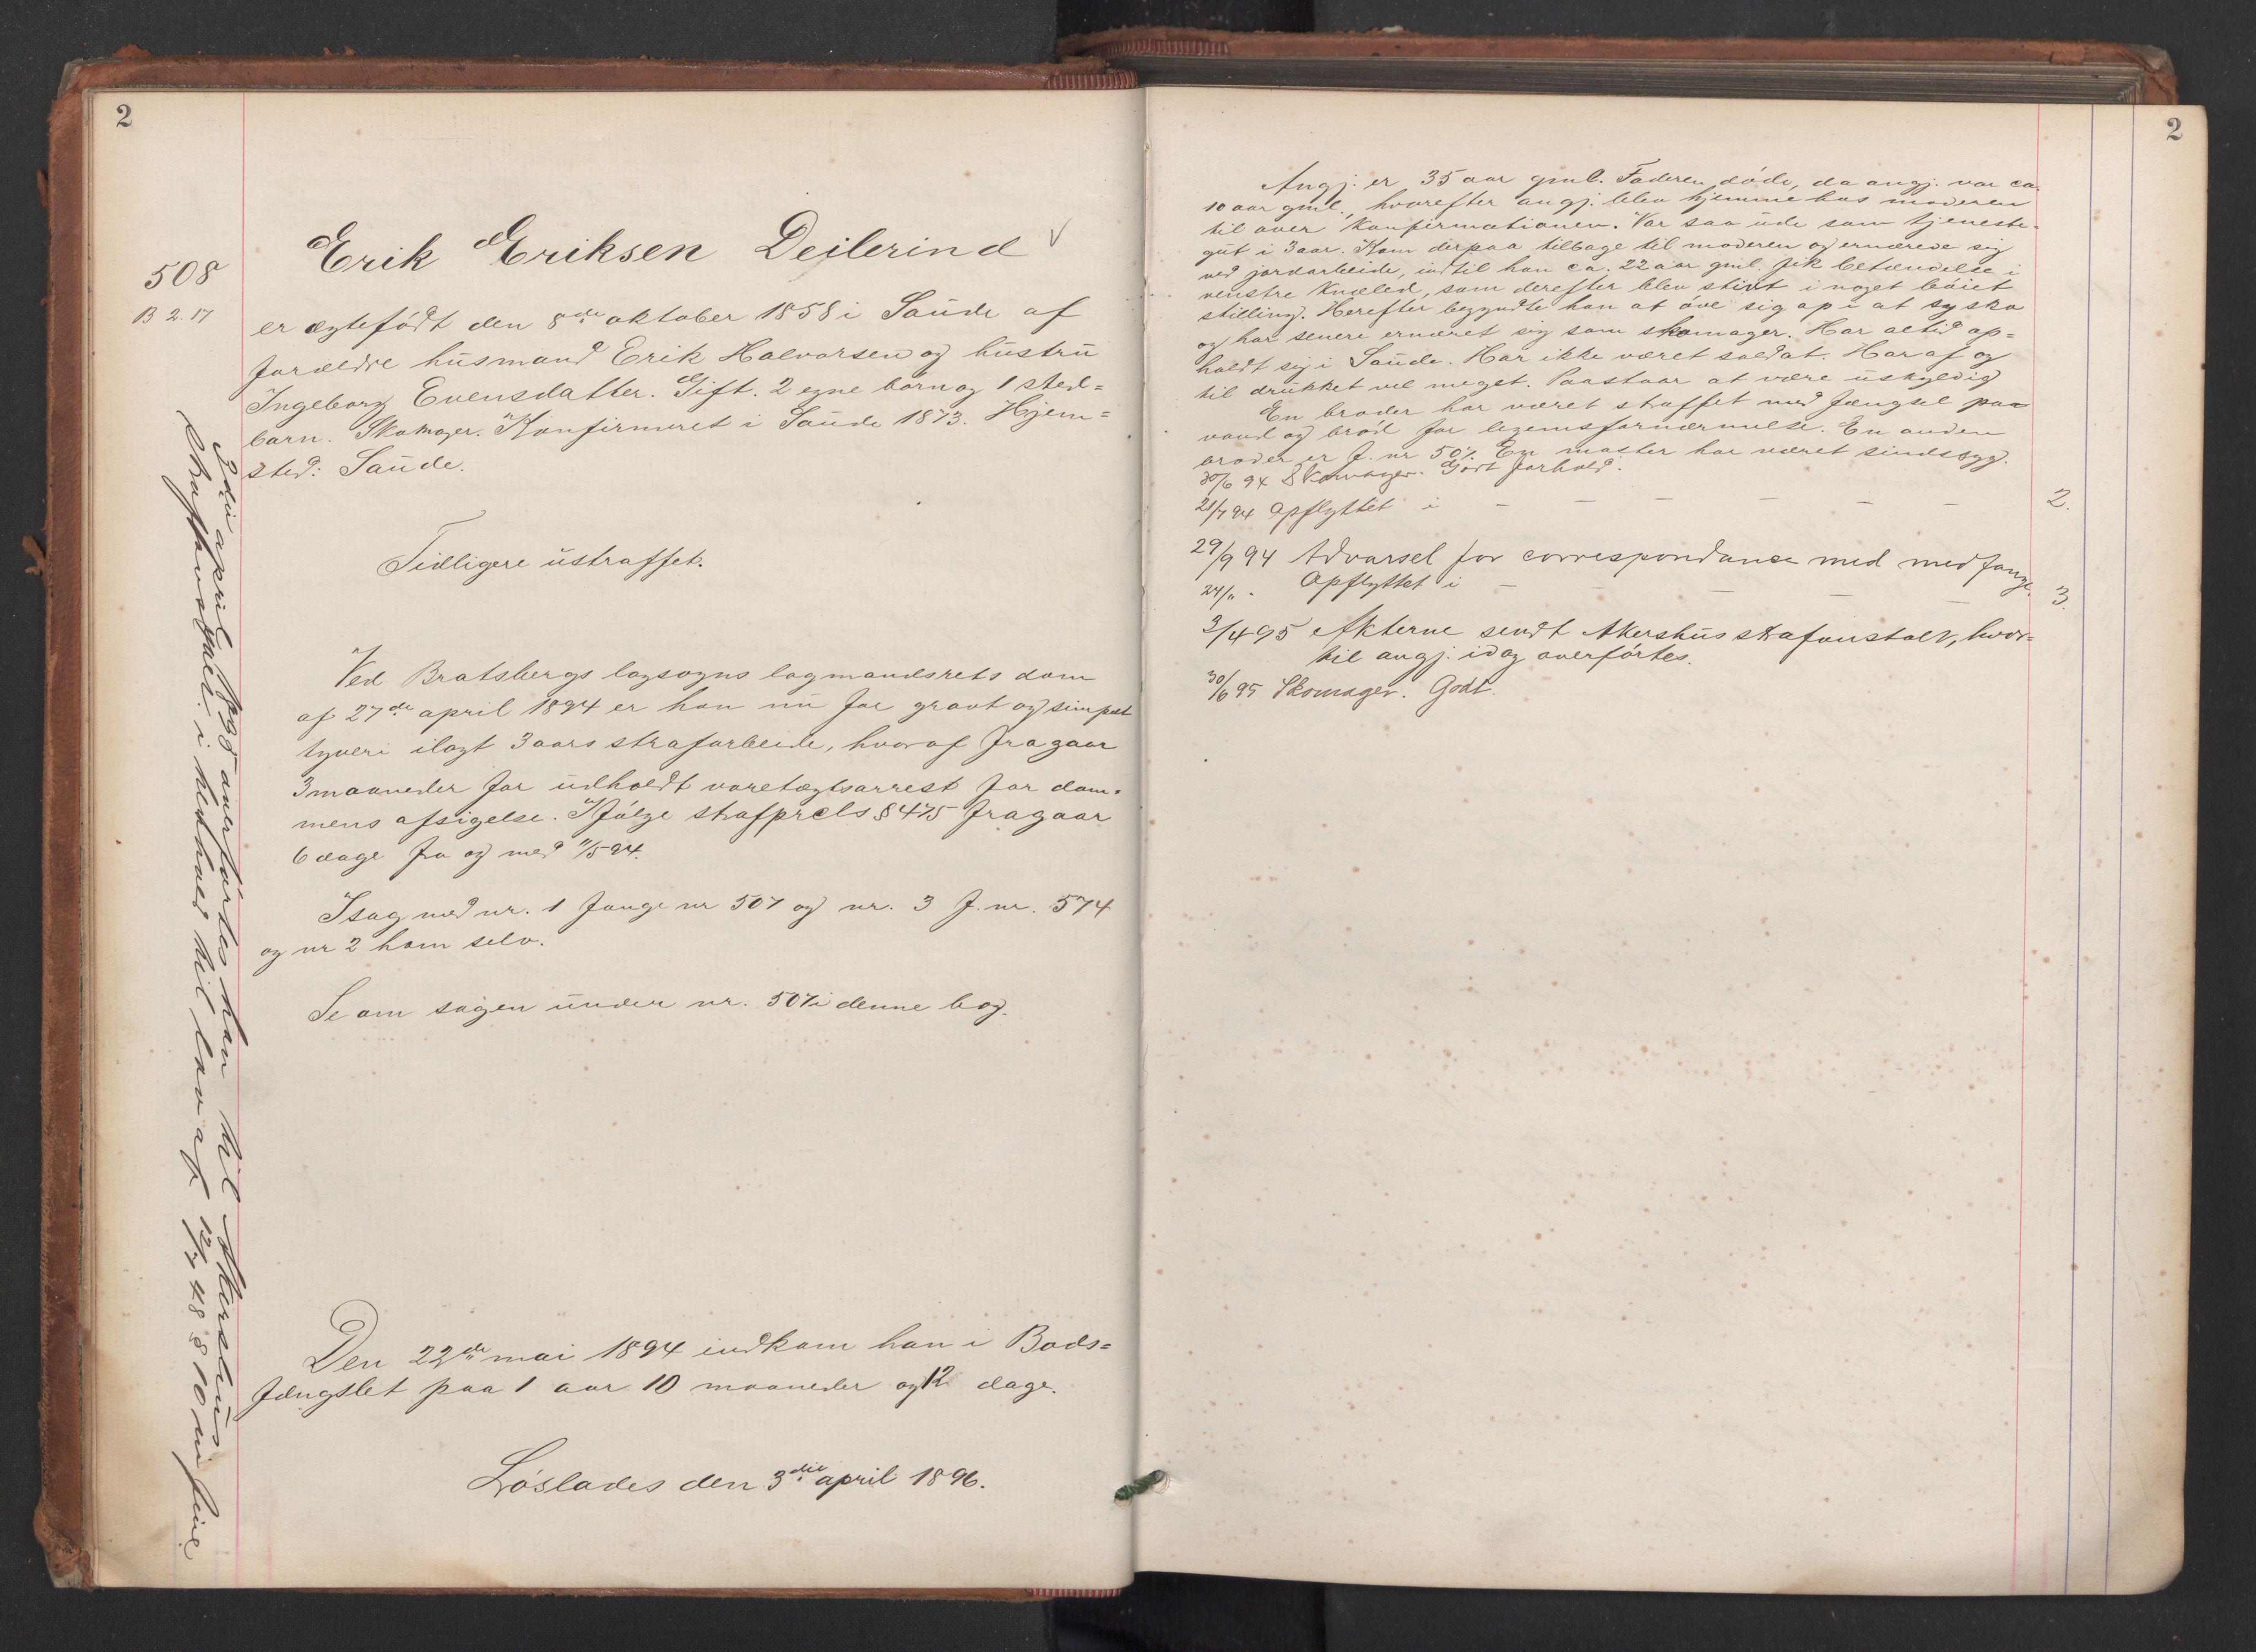 2
508
B 2. 17
Erik Eriksen Deilerind
er ægtefødt den 8de oktober 1858 i Saude af
forældre husmand Erik Halvorsen og hustru
Ingeborg Evensdatter. Gift. 2 egne børn og 1 sted=
barn. Skomager. Konfirmeret i Saude 1873. Hjem=
sted: Saude.
Tidligere ustraffet.
Ved Bratsbergs lagsogns lagmandsrets dom
af 27de april 1894 er han nu for grovt og simpelt
tyveri ilagt 3 aars strafarbeide, hvoraf fragaar
3 maaneder for udholdt varetægtsarrest før dom=
mens afsigelse. Ifølge strafprcls § 475 fragaar
6 dage fra og med 11/5 94.
I sag med nr. 1 fange nr 507 og nr. 3 f. nr. 574
og nr 2 ham selv.
Se om sagen under nr. 507 i denne bog.
Den 22de mai 1894 indkom han i Bods=
fængslet paa 1 aar 10 maaneder og 12 dage.
Løslades den 3die april 1896.
3die april 1895 overførtes han til Akershus
Strafanstalt i henhold til lov af 12/7 48 § 10 in fine
2
Angj. er 35 aar gml. Faderen døde, da angj. var ca.
10 aar gml., hvorefter angj. blev hjemme hos moderen
til over konfirmationen. Var saa ude som tjeneste=
gut i 3 aar. Kom derpaa tilbage til moderen og ernærede sig
ved jordarbeide, indtil han ca. 22 aar gml. fik betændelse i
venstre knæled, som derefter blev stivt i noget bøiet
stilling. Herefter begyndte han at øve sig op i at sy sko
og har senere ernæret sig som skomager. Har altid op=
holdt sig i Saude. Har ikke været soldat. Har af og
til drukket vel meget. Paastaar at være uskyldig
En broder har været straffet med fængsel paa
vand og brød for legemsfornærmelse. En anden
broder er f. nr 507. En moster har været sindssyg.
30/6 94 Skomager. Godt forhold.
21/7 94 Opflyttet i – – – – – – 2.
29/9 94 Advarsel for correspondance med medfange.
24/11 - Opflyttet i – – – – 3.
3/4 95 Akterne sendt Akershus strafanstalt, hvor=
til angj. idag overførtes.
30/6 95 Skomager. Godt.